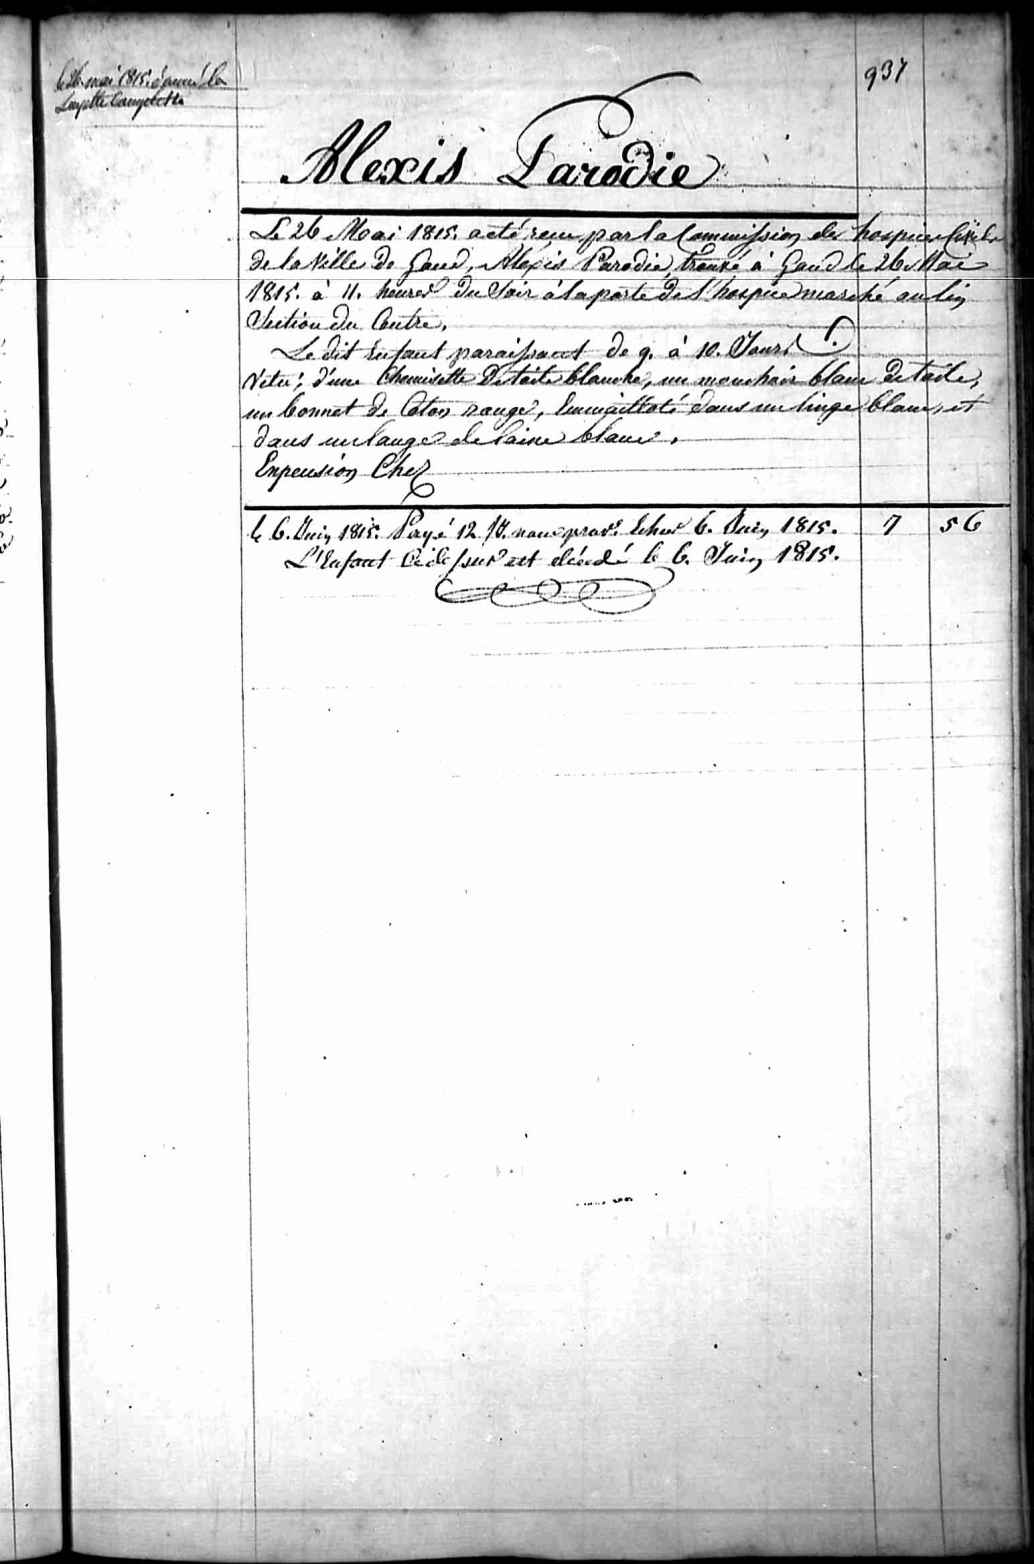 937
le 26 mai 1815 donné la
Layette Complette
Alexis Parodie
Le 26 Mai 1815. a été reçu par la Commission des hospices Civils
de la Ville de Gand, Alexis Parodie, trouvé à Gand le 26 Mai
1815. à 11. heures du Soir à la porte de l'hospice marché au lin
Section du Centre.
Le dit Enfant paraissant de 9. à 10. Jours.
Vetu: d'une Chemisette De toile blanche, un mouchoir blanc de toile,
un bonnet de Coton rouge, Emmailloté dans un linge blanc, et
dans un lange de laine blanc.
Enpension Chez
le 6. Juin 1815. Payé 12 Jrs. nour prov.e Echus 6. Juin 1815. 7 56
L'Enfant Cidessus est décédé le 6. Juin 1815.